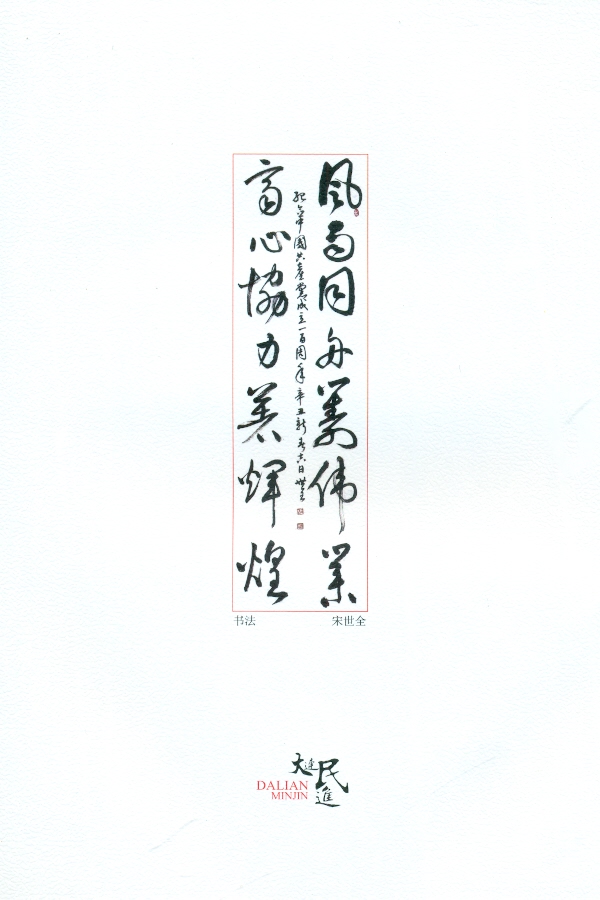 风雨同舟筹伟業
齐心協力著煇煌
纪念中國共產黨成立一百周年辛丑新春六日世全
书法 宋世全
大连民進
DALIAN
MINJIN